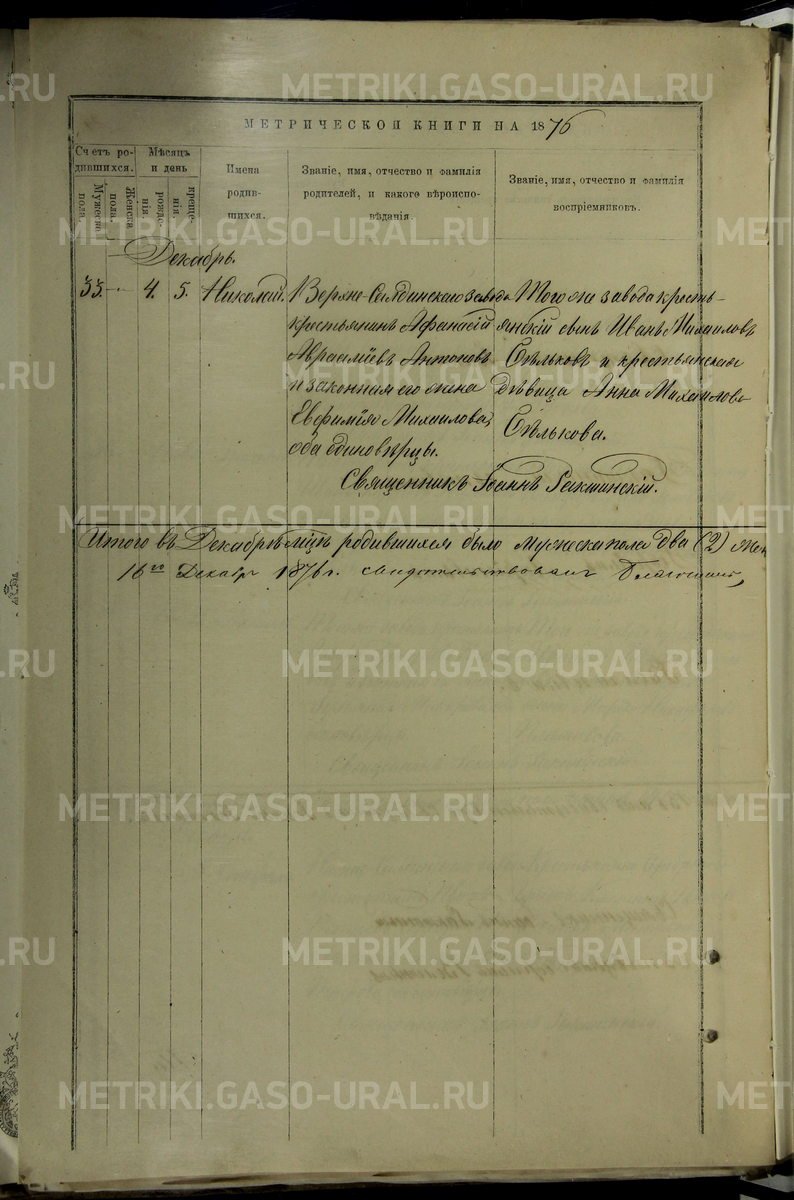 МЕТРИЧЕСКОЙ КНИГИ НА 1876
Счетъ ро-
дившихся.
Мужеска
пола.
Женска
пола.
Мѣсяцъ
и день
рожде-
нія.
креще-
нія.
Имена
родив-
шихся.
Званіе, имя, отчество и фамилія
родителей, и какого вѣроиспо-
вѣданія.
Званіе, имя, отчество и фамилія
воспріемниковъ.
Декабрь.
33. 4. 5. Николай.
Верхне-Салдинскаго завода
крестьянинъ Афанасій
Авраамiевъ Антоновъ
и законная его жена
Евфимія Михаилова,
оба единовѣрцы.
Того же завода кресть-
янскій сынъ Иванъ Михаиловъ
Сѣльковъ и крестьянская
дѣвица Анна Михаилова
Сѣлькова.
Священникъ Іоаннъ
Итого въ Декабрѣ мцѣ родившихся было мужеска пола два (2) жен
16го Декабр 1876 г. свидѣтельствовалъ
METRIKI.GASO-URAL.RU